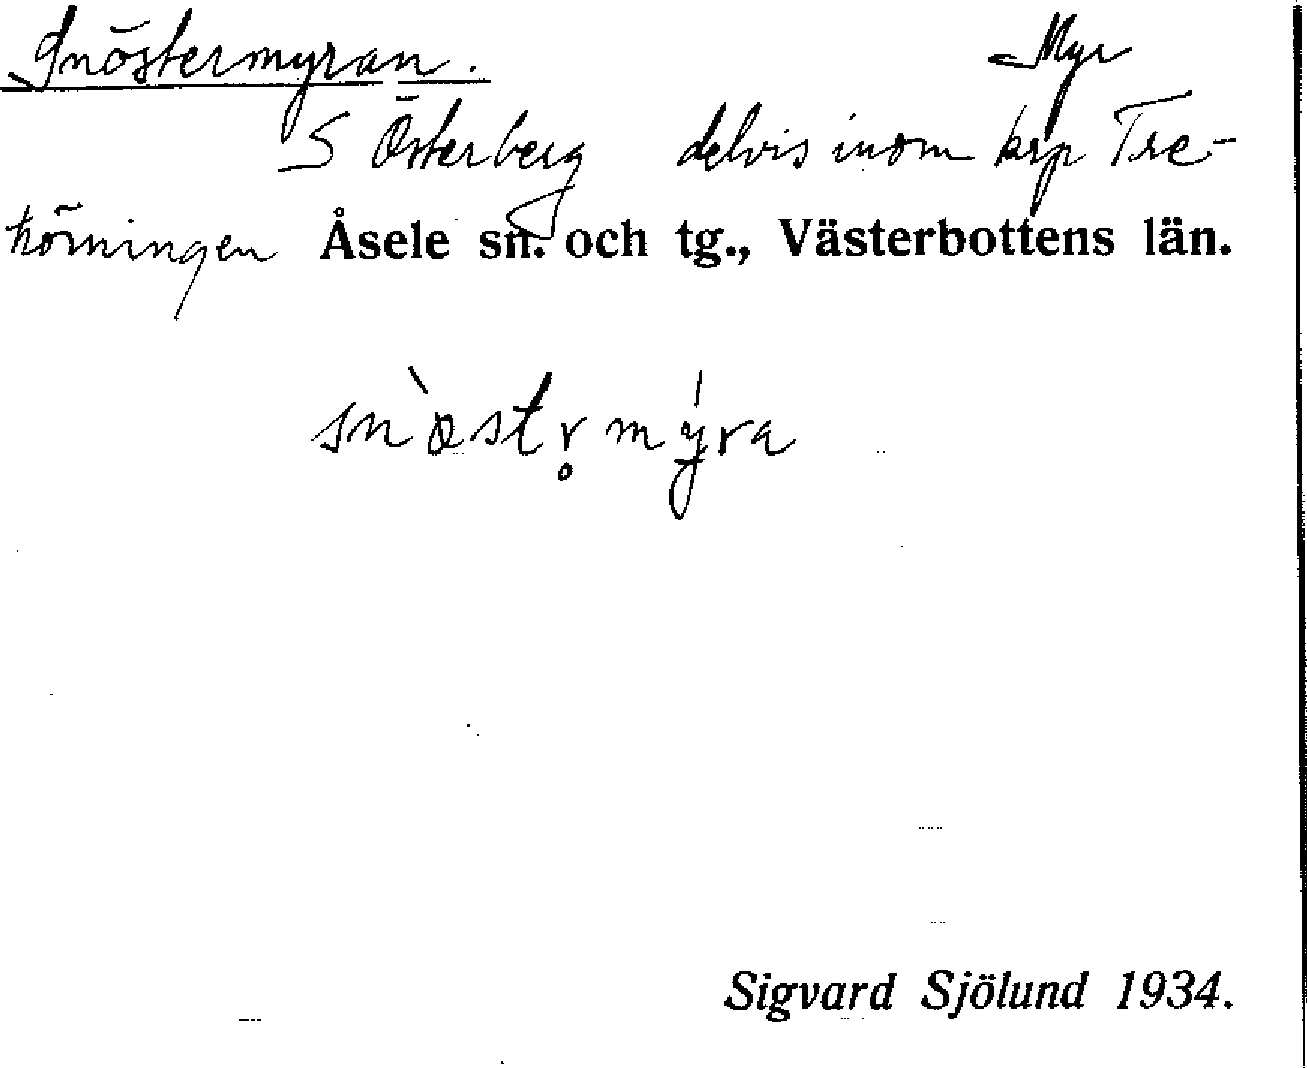 Snöstermyran. Myr
S Österberg delvis inom krp Tre-
körningen Åsele sn. och tg., Västerbottens län.
snò̀str̥mýra
Sigvard Sjölund 1934.